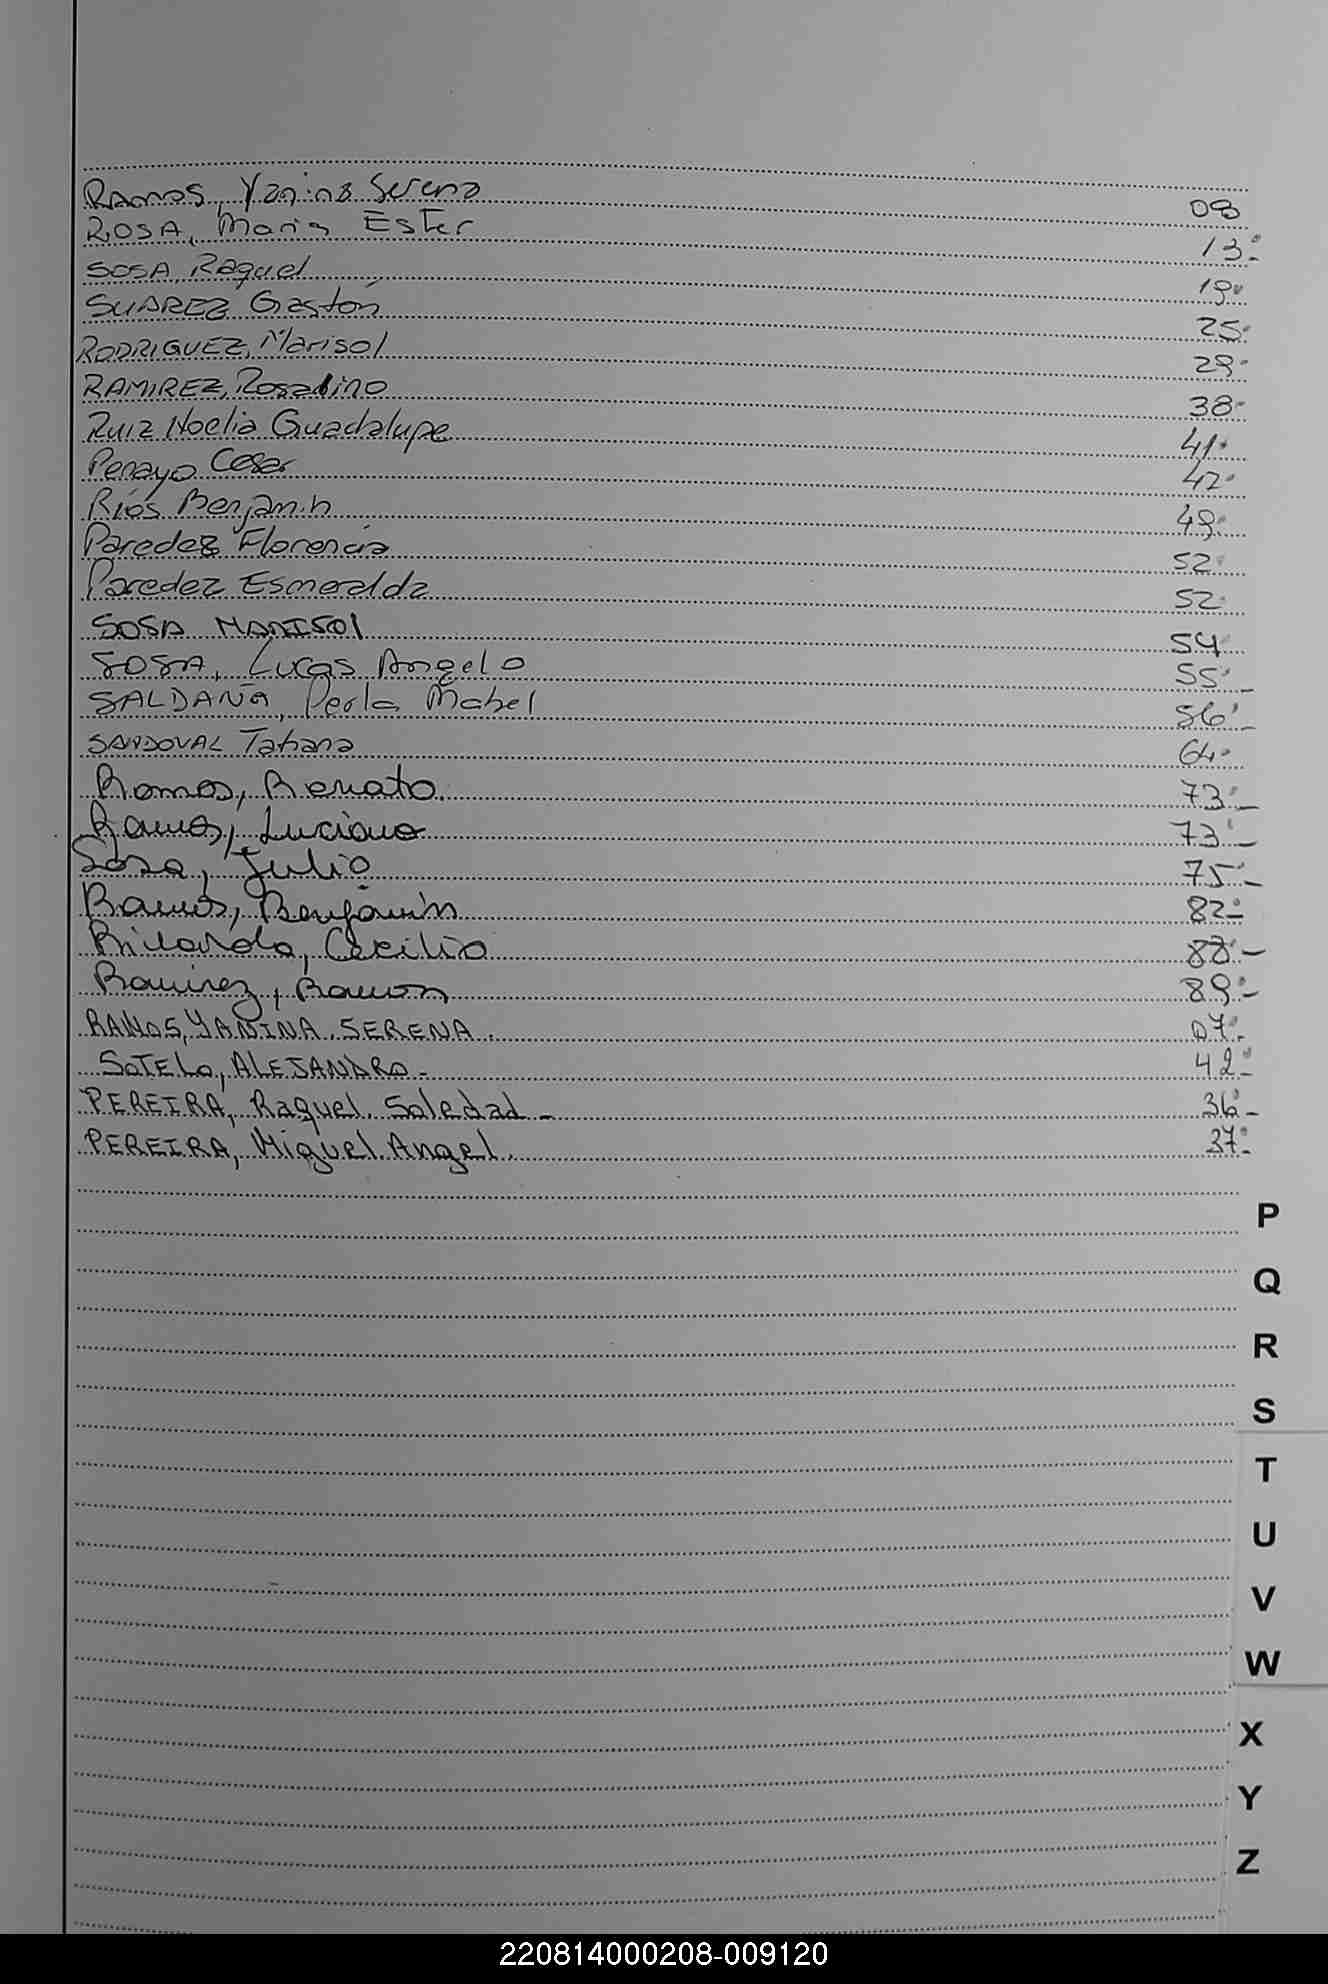 Ramos, Yanina Serena 08
ROSA, Maria Ester 13
SOSA, Raquel 19
SUAREZ Gastón 25
RODRIGUEZ, Marisol 29
RAMIREZ, Rosalino 38
Ruiz Noelia Guadalupe 41
Penayo Cesar 42
Ríos Benjamin 49
Paredez Florencia 52
Paredez Esmeralda 52
SOSA MARISOl 54
SOSA, Lucas Angelo 55
SALDAÑA, Perla Mabel 56
SANDOVAL Tatiana 64
Ramos, Renato. 73
Ramos, Luciano 73
Sosa, Julio 75
Ramos, Benjamín 82
Ricardo, Cecilio 88
Ramirez, Ramon 89
RAMOS, YANINA SERENA. 07
SOTELO, ALEJANDRO- 42
PEREIRA, Raquel Soledad - 36
PEREIRA, Miguel Angel. 37
P
Q
R
S
T
U
V
W
X
Y
Z
220814000208-009120